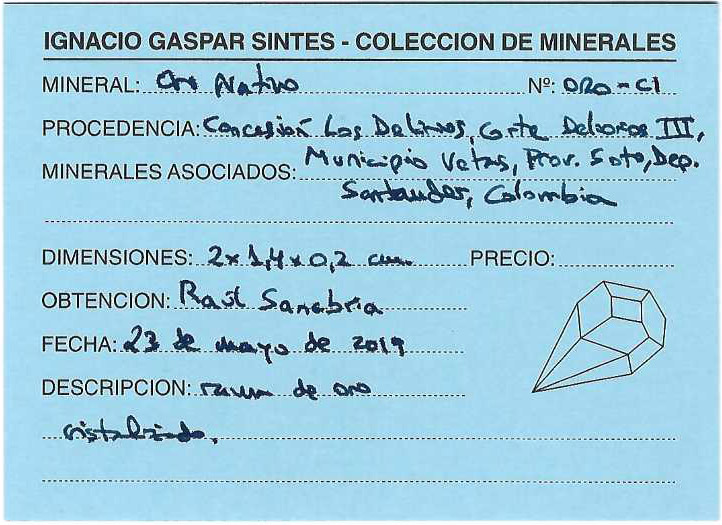 IGNACIO GASPAR SINTES - COLECCION DE MINERALES
MINERAL: Oro Nativo Nº: ORO-C1
PROCEDENCIA: Concesión Los Delirios, Corte Dolores III,
Municipio Vetas, Prov. Soto, Dep.
MINERALES ASOCIADOS:
Santander, Colombia
DIMENSIONES: 2x1,4x0,2 cm. PRECIO:
OBTENCION: Raúl Sanabria
FECHA: 23 de mayo de 2019
DESCRIPCION: de oro
cristalizado.